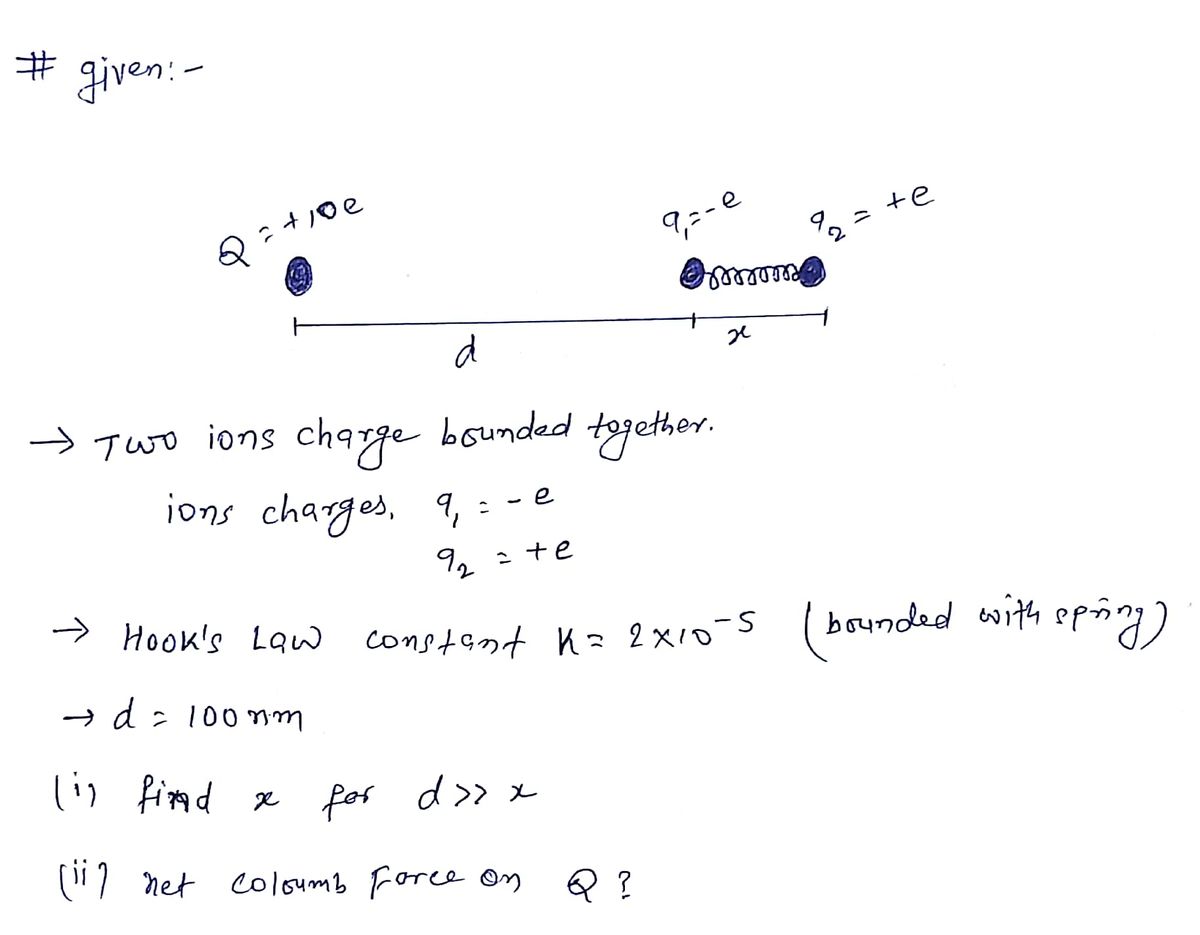 # given:-
Q = +10e
q₁=-e
q₂ = +e
d
x
→ Two ions charge bounded together.
ions charges, q₁ = -e
q₂ = +e
→ Hook's Law constant K = 2×10⁻⁵ (bounded with spring)
→ d = 100 nm
(i) find x for d >> x
(ii) net coloumb Force on Q ?